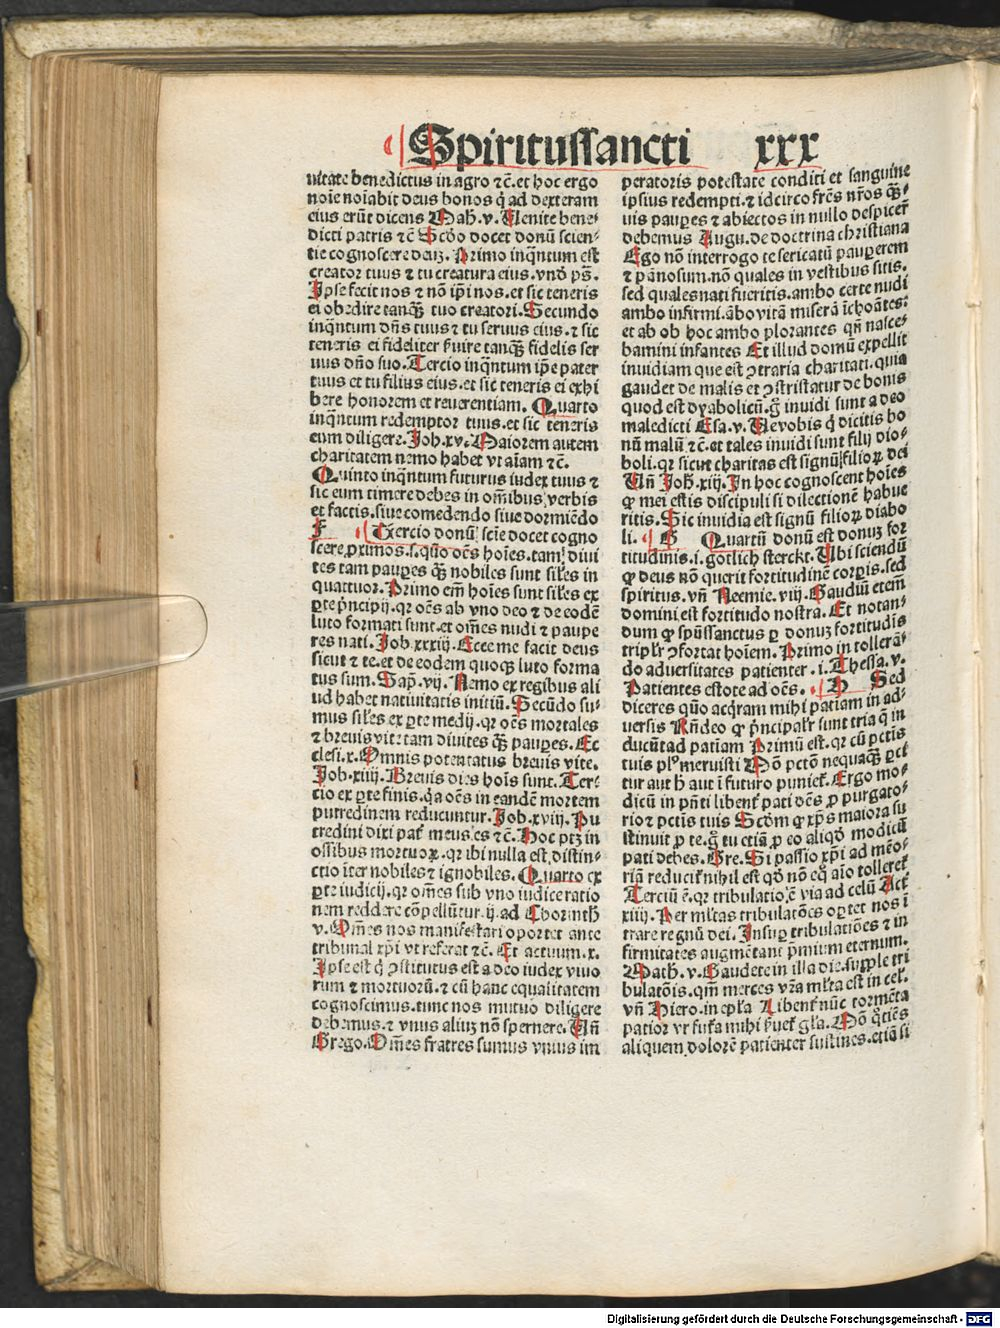 Spiritussancti xxx
uitate benedictus in agro ⁊c̄. et hoc ergo
noīe noīabit deus bonos q̇ ad dexteram
eius erūt dicens Math. v. Uenite bene-
dicti patris ⁊c̄ Scd̄o docet donū scien-
tie cognoscere deuꝫ. Primo inq̄ntum est
creator tuus ⁊ tu creatura eius. vnd̄ ps̄.
Ipse fecit nos ⁊ nō ip̄i nos. et sic teneris
ei obedire tanqꝫ tuo creatori. Secundo
inq̄ntum dn̄s tuus ⁊ tu seruus eius. ⁊ sic
teneris ei fideliter ẜuire tanqꝫ fidelis ser
uus dn̄o suo. Tercio inq̄ntum ip̄e pater
tuus et tu filius eius. et sic teneris ei exhi
bere honorem et reuerentiam. Quarto
inq̄ntum redemptor tuus. et sic teneris
eum diligere. Joh. xv. Maiorem autem
charitatem nemo habet vt aīam ⁊c̄.
Quinto inq̄ntum futurus iudex tuus ⁊
sic eum timere debes in om̄ibus verbis
et factis. siue comedendo siue dormiēdo
F Tercio donū scīe docet cogno
scere ꝓximos. s. quō oēs hoīes. tam diui
tes tam pauꝑes qꝫ nobiles sunt sil̄es in
quattuor. Primo em̄ hoīes sunt sil̄es ex
ꝑte pr̄ncipij. qꝛ oēs ab vno deo ⁊ de eodē
luto formati sunt. et om̄es nudi ⁊ paupe
res nati. Job. xxxiij. Ecce me facit deus
sicut ⁊ te. et de eodem quoqꝫ luto forma
tus sum. Sap̄. vij. Nemo ex regibus ali
ud habet natiuitatis initiū. Secūdo su-
mus sil̄es ex ꝑte medij. qꝛ oēs mortales
⁊ breuis vite tam diuites qꝫ pauꝑes. Ec
clesi. x. Omnis potentatus breuis vite.
Job. xiiij. Breuis dies hoīs sunt. Ter-
cio ex ꝑte finis. q̇a oēs in eandē mortem
putredinem reducuntur. Job. xvij. Pu
tredini dixi pat̄ meus es ⁊c̄. Hoc ptꝫ in
ossibus mortuoꝝ. qꝛ ibi nulla est distin-
ctio īter nobiles ⁊ ignobiles. Quarto ex
ꝑte iudicij. qꝛ om̄es sub vno iudice ratio
nem reddere cōpellūtur. ij. ad Chorinth̄
v. Om̄es nos manifestari oportet ante
tribunal xp̄i vt referat ⁊c̄. Et actuum. x.
Ipse est q̇ ꝯstitutus est a deo iudex viuo
rum ⁊ mortuorū. ⁊ cū hanc equalitatem
cognoscimus. tunc nos mutuo diligere
debemus. ⁊ vnus aliuꝫ nō spernere. Un̄
Grego. Om̄es fratres sumus vnius im
peratoris potestate conditi et sanguine
ipsius redempti. ⁊ idcirco fr̄es nr̄os qꝫ-
uis pauꝑes ⁊ abiectos in nullo despicer̄
debemus Augu. de doctrina christiana
Ego nō interrogo te sericatū pauꝑerem
⁊ pānosum. nō quales in vestibus sitis.
sed quales nati fueritis. ambo certe nudi
ambo infirmi. ābo vitā miserā īchoātes:
et ab ob hoc ambo plorantes qn̄ nasce-
bamini infantes Et illud donū expellit
inuidiam que est ꝯtraria charitati. quia
gaudet de malis et ꝯstristatur de bonis
quod est dyabolicū. g̊ inuidi sunt a deo
maledicti Esa. v. Ue vobis q̇ dicitis bo
nū malū ⁊c̄. et tales inuidi sunt filij dio-
boli. qꝛ sicut charitas est signū filioꝝ dei
Un̄ Joh̄. xiij. In hoc cognoscent hoīes
ꝙ mei estis discipuli si dilectionē habue
ritis. Sic inuidia est signū filioꝝ diabo
li. G Quartū donū est donuꝫ for
titudinis. i. gotlich sterckt. Ubi sciendū
ꝙ deus nō querit fortitudinē corꝑis. sed
spiritus. vn̄ Neemie. viij. Gaudiū etem̄
domini est fortitudo nostra. Et notan-
dum ꝙ spūssanctus ꝑ donuꝫ fortitudīs
triplr̄ ꝯfortat hoīem. Primo in tollerā-
do aduersitates patienter. i. Thessa. v.
Patientes estote ad oēs. H Sed
diceres quō acq̄ram mihi patiam in ad-
uersis Rn̄deo ꝙ pr̄ncipalr̄ sunt tria q̄ in
ducūt ad patiam Primū est. qꝛ cū pctīs
tuis pl̕ meruisti Nō pctō nequaqꝫ ꝑci
tur aut h̄ aut ī futuro puniet̄. Ergo mo-
dicū in pn̄ti libent̄ pati dēs ꝓ purgato-
rio ⁊ pctīs tuis Scd̄m ꝙ xp̄s maiora su
stinuit ꝓ te. g̊ tu etiā ꝓ eo aliqd̄ modicū
pati debes. Gre. Si passio xp̄i ad mēo-
riā reducit̄ nihil est qd̄ nō eq̊ aīo tolleret̄
Terciū ē. qꝛ tribulatio ē via ad celū Act̄
xiiij. Per ml̄tas tribulatōes oꝑtet nos ī
trare regnū dei. Insuꝑ tribulatiōes ⁊ in
firmitates augmētant p̄mium eternum.
Math. v. Gaudete in illa die. supple tri
bulatōis. qm̄ merces vr̄a ml̄ta est in cel̄.
vn̄ Hiero. in epl̄a Libent̄ nūc tormēta
patior vt fut̄a mihi ẜuet̄ gl̄a. Nō q̊ciēs
aliquem dolorē patienter sustines. etiā si
Digitalisierung gefördert durch die Deutsche Forschungsgemeinschaft - DFG